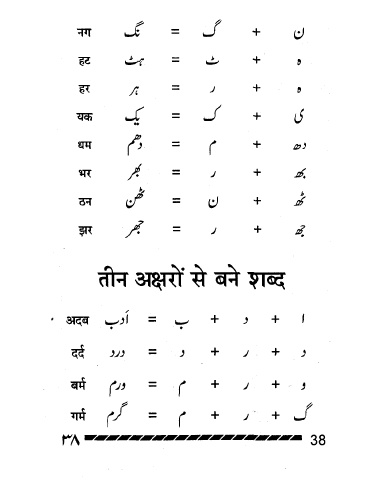 ن + گ = نگ नग
ہ + ٹ = ہٹ हट
ہ + ر = ہر हर
ی + ک = یک यक
دھ + م = دھم धम
بھ + ر = بھر भर
ٹھ + ن = ٹھن ठन
جھ + ر = جھر झर
तीन अक्षरों से बने शब्द
ا + د + ب = اَدب अदब
د + ر + د = درد दर्द
و + ر + م = ورم बर्म
گ + ر + م = گرم गर्म
۳۸ 38